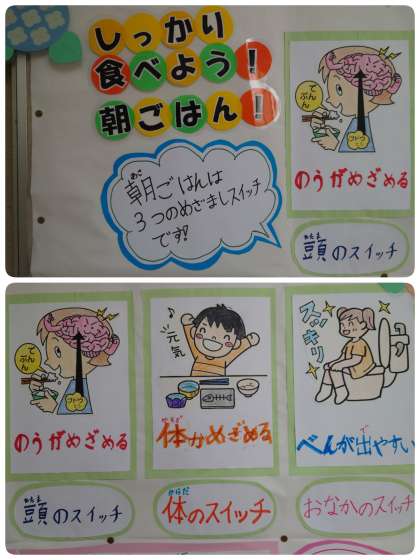 しっかり
食べよう!
朝ごはん!
あさ
朝ごはんは
3つのめざましスイッチ
です!
でん
ぷん
ブドウ
のうがめざめる
あたま
頭のスイッチ
でん
ぷん
ブドウ
のうがめざめる
あたま
頭のスイッチ
元気
からだ
体がめざめる
からだ
体のスイッチ
スッキリ
で
べんが出やすい
おなかのスイッチ